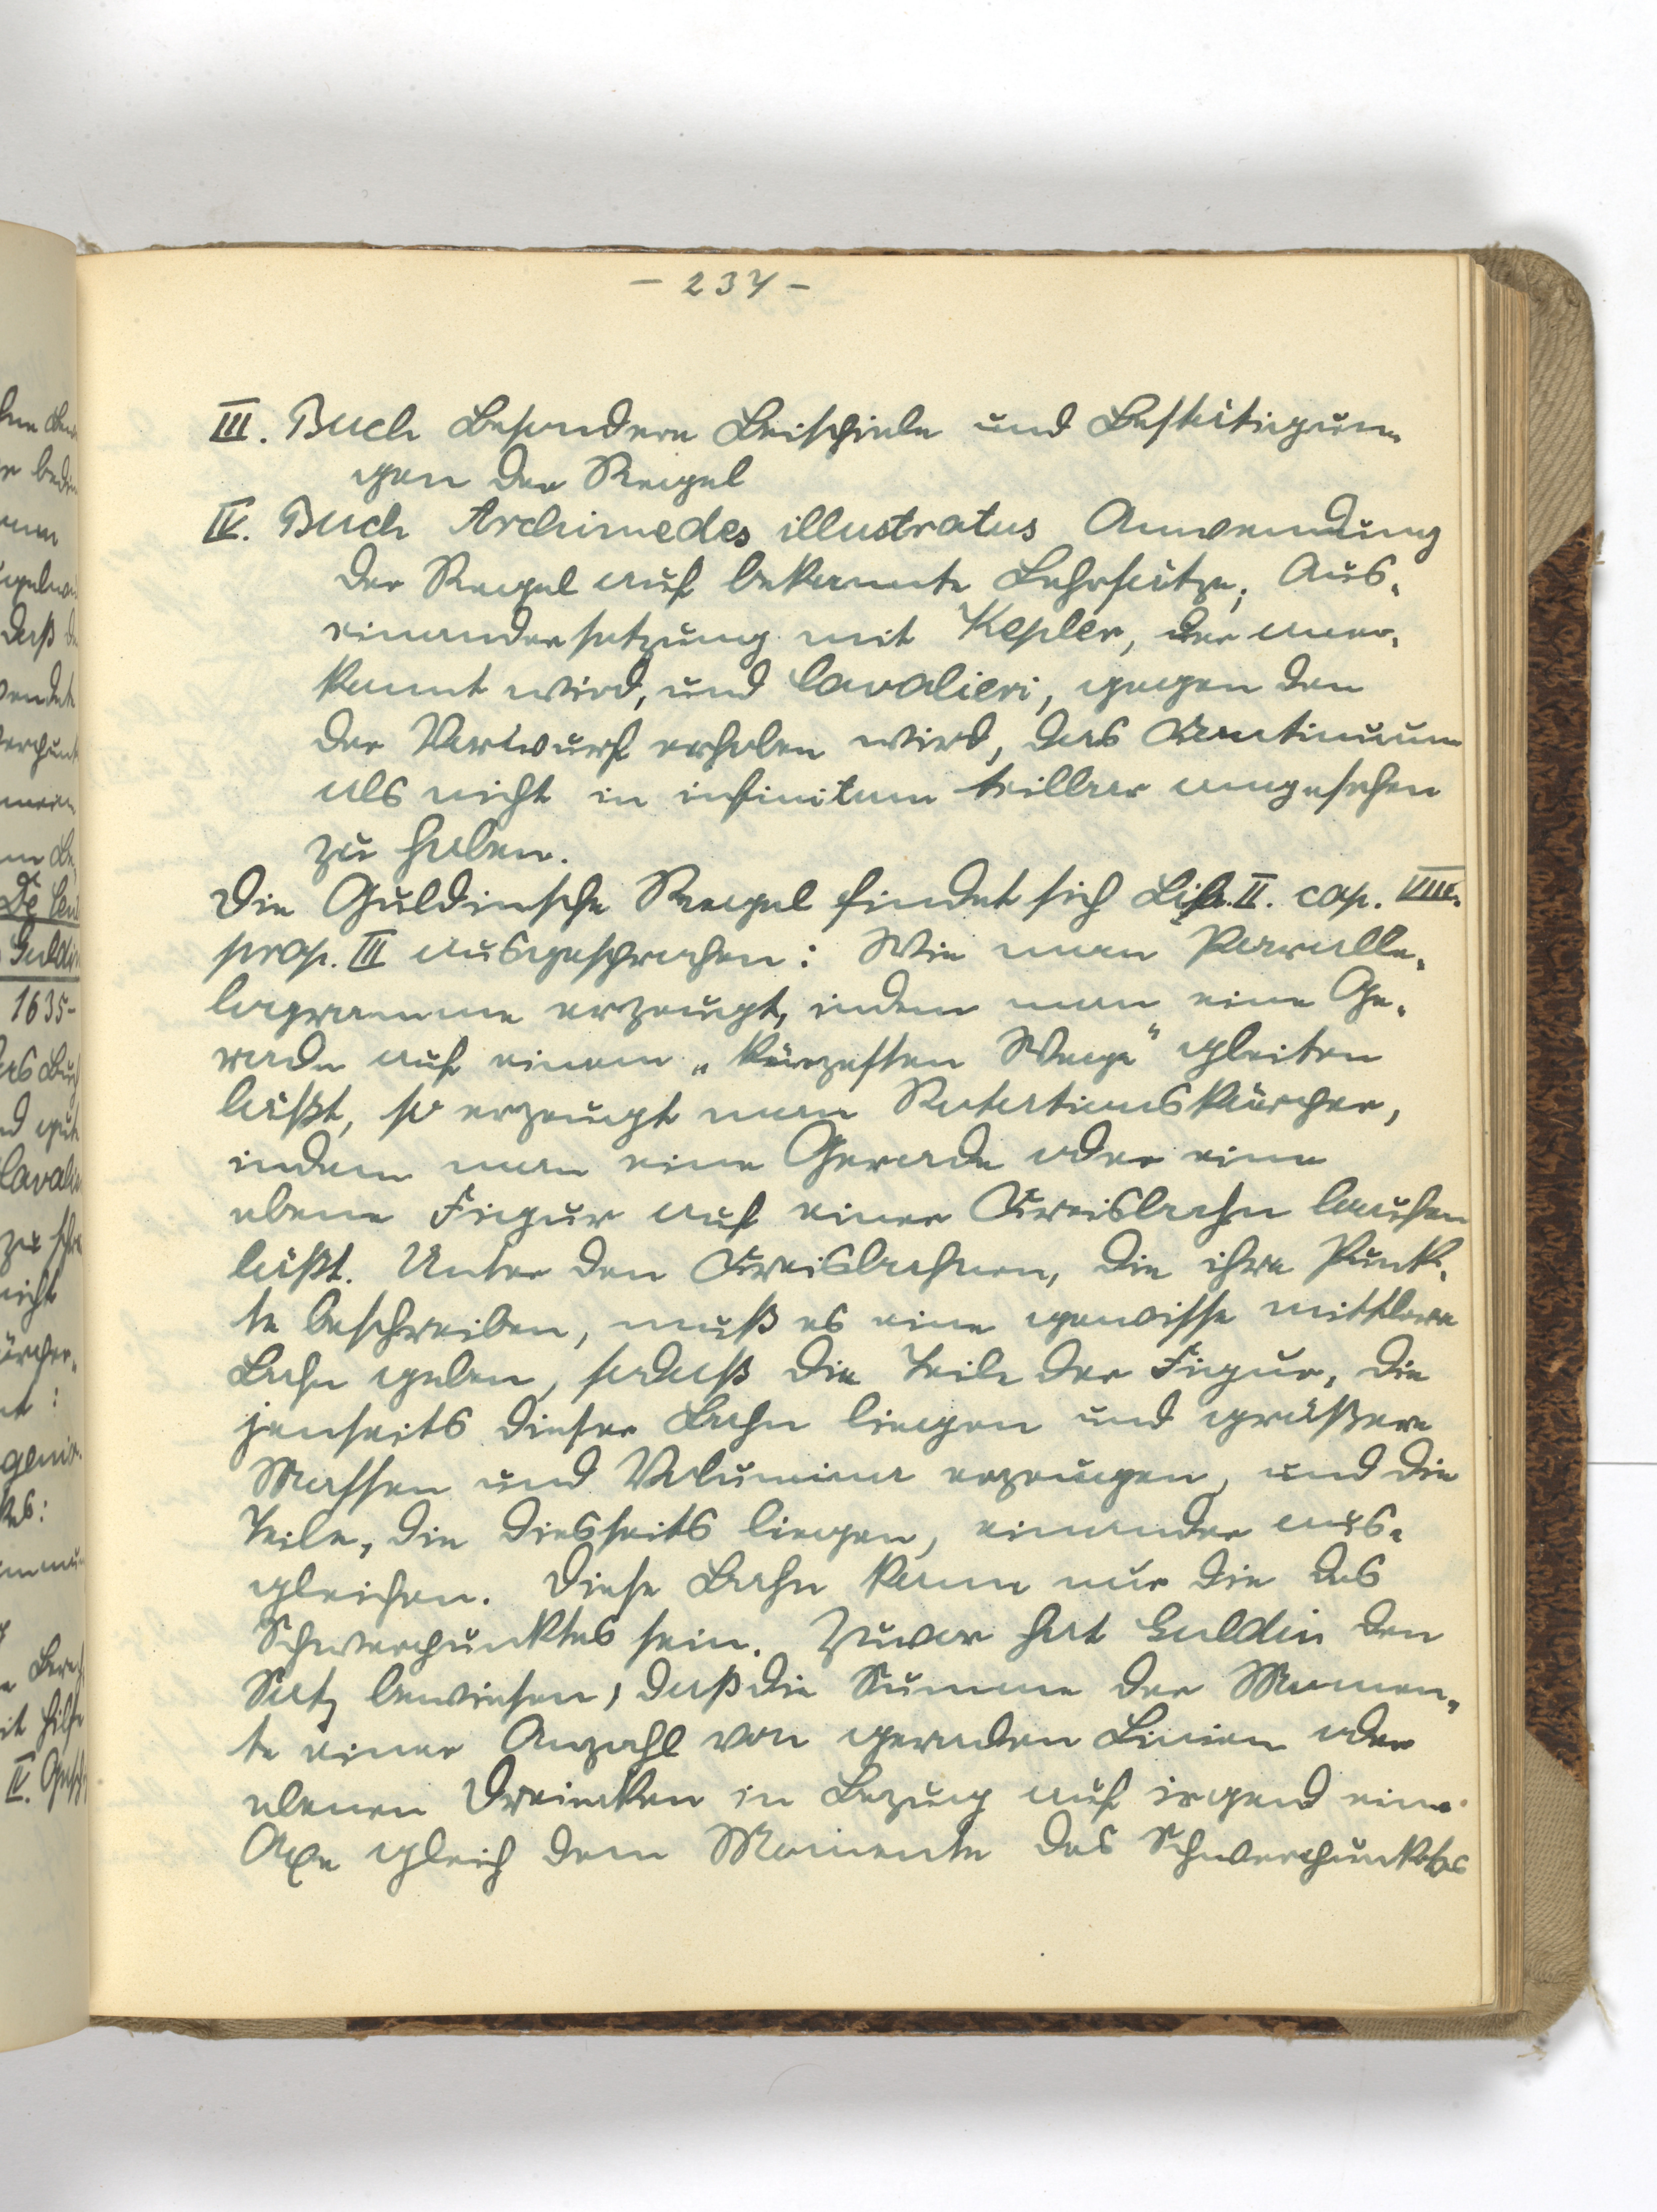 - 237 -
III. Buch Besondere Beispiele und Bestätigun-
gen der Regel
IV. Buch Archimedes illustratus Anwendung
der Regel auf bekannte Lehrsätze, Aus-
einandersetzung mit Kepler, der aner-
kannt wird, und Cavalieri, gegen den
der Vorwurf erhoben wird, das Continuum
als nicht in infinitum teilbar angesehen
zu haben.
Die Guldinsche Regel findet sich Lib. II. cap. VIII.
prop. III ausgesprochen: Wie man Paralle-
logramme erzeugt, indem man eine Ge-
rade auf einem „kürzesten Wege" gleiten
läßt, so erzeugt man Rotationskörper,
indem man eine Gerade oder eine
ebene Figur auf einer Kreisbahn laufen
läßt. Unter den Kreisbahnen, die ihre Punk-
te beschreiben, muß es eine gewisse mittlere
Bahn geben, sodaß die Teile der Figur, die
jenseits dieser Bahn liegen und größere
Massen und Volumina erzeugen, und die
Teile, die diesseits liegen, einander aus-
gleichen. Diese Bahn kann nur die des
Schwerpunktes sein. Zuvor hat Guldin den
Satz bewiesen, daß die Summe der Momen-
te einer Anzahl von geraden Linien oder
ebenen Dreiecken in Bezug auf irgend eine
Axe gleich dem Momente des Schwerpunktes